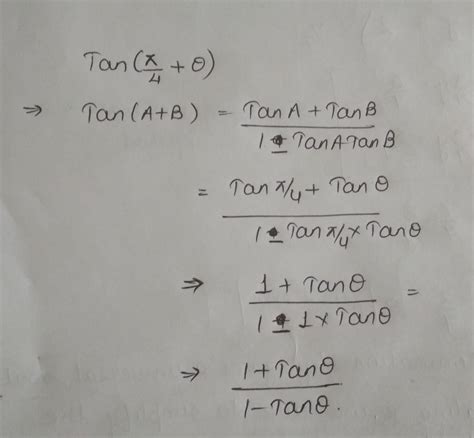 Tan(π/4 + θ)
⇒ Tan(A+B) = TanA + TanB / 1 - TanATanB
= Tan π/4 + Tan θ / 1 - Tan π/4 × Tanθ
⇒ 1 + Tanθ / 1 - 1 × Tanθ =
⇒ 1 + Tanθ / 1 - Tanθ.